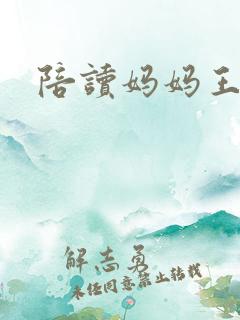 陪讀妈妈王
解志勇
未经同意禁止转载